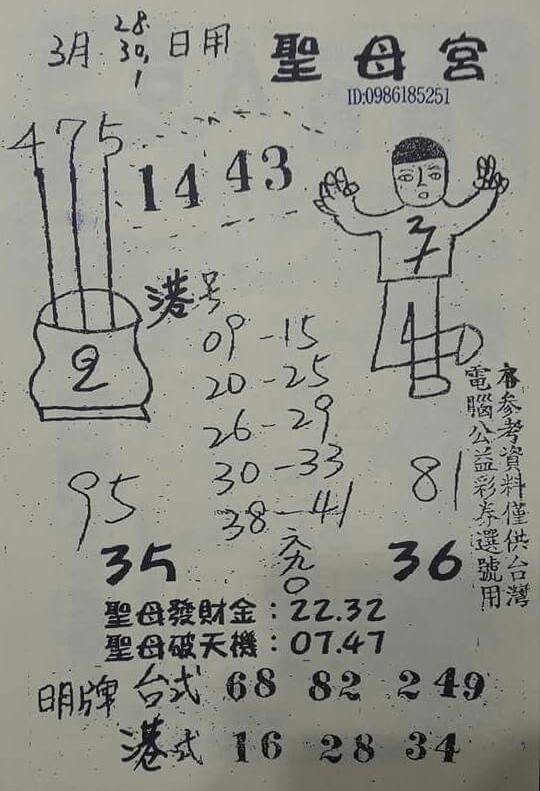 3月 28. 30, 1 日用
聖母宮
ID:0986185251
475
14 43
港号
09-15
20-25
26-29
30-33
38-41
六九〇
2
37
95
81
35
36
聖母發財金：22.32
聖母破天機：07.47
明牌 台式 68 82 2 49
港式 16 28 34
參考資料僅供台灣
電腦公益彩券選號用